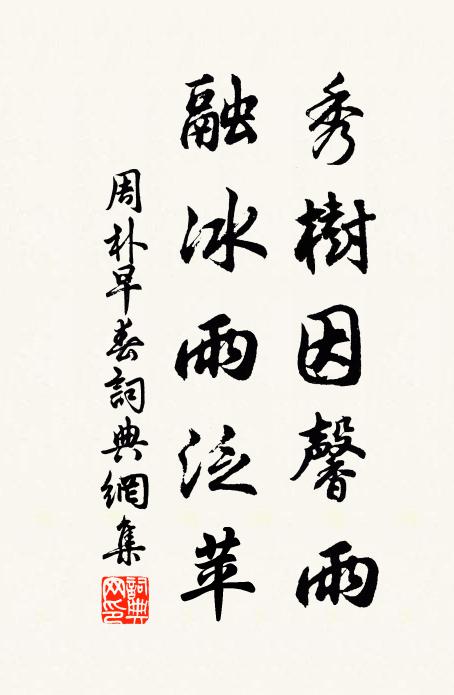 秀樹因馨雨
融冰雨泛苹
周朴早春詞典網集
詞典網印